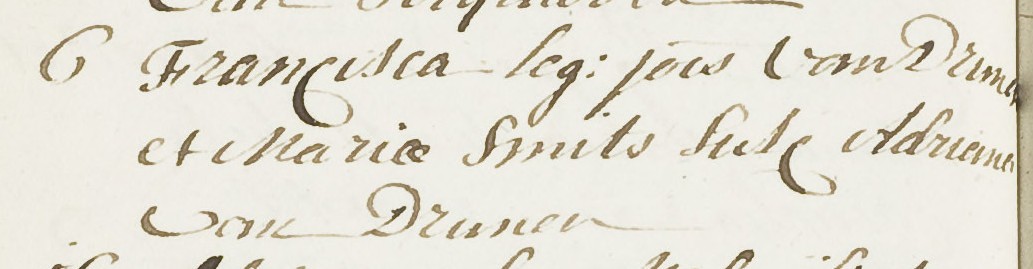 6 Francisca leg: jois van Drunen
et Mariæ Smits Susc Adriana
van Drunen